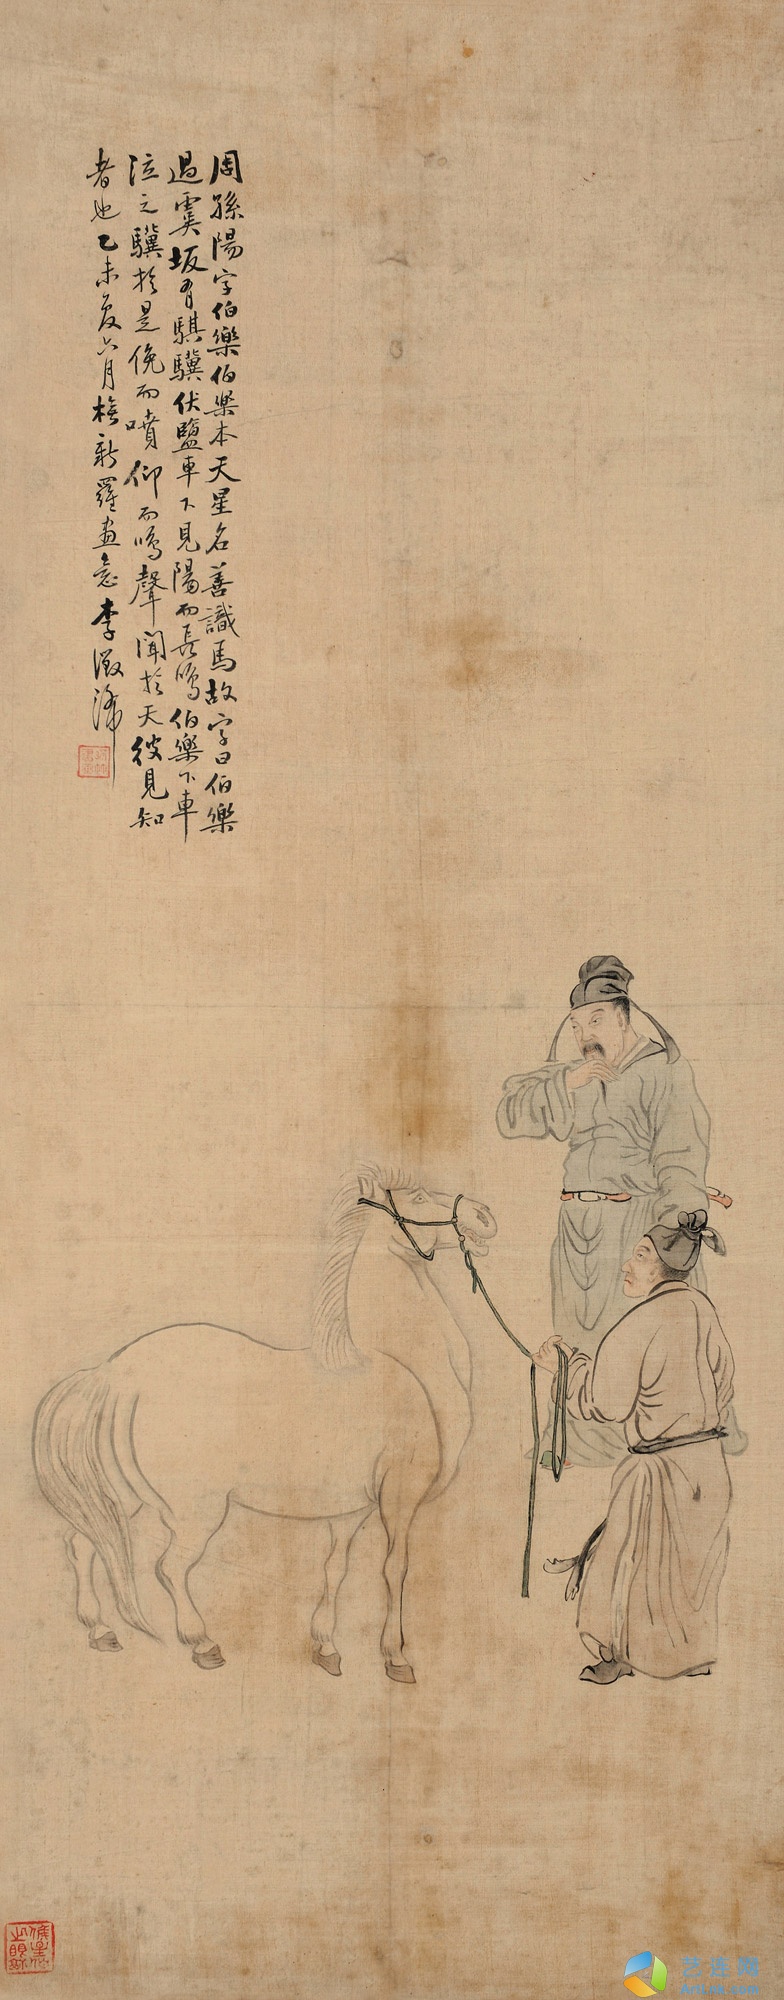 周孫陽字伯樂伯樂本天星名善識馬故字曰伯樂
過虞坂有騏驥伏鹽車下見陽而長鳴伯樂下車
泣之驥於是俛而噴仰而鳴聲聞於天彼見知
者也乙未夏六月橅新羅畫意李
艺连端